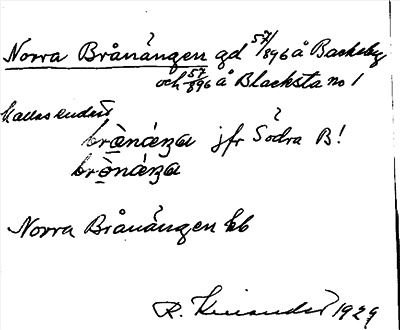 Norra Brånängen gd 57/896 å Backeby
och 57/896 å Blacksta no 1
Kallas endast
brònáŋa jfr Södra B!
brònáŋa
Norra Brånängen kb
R. 1929